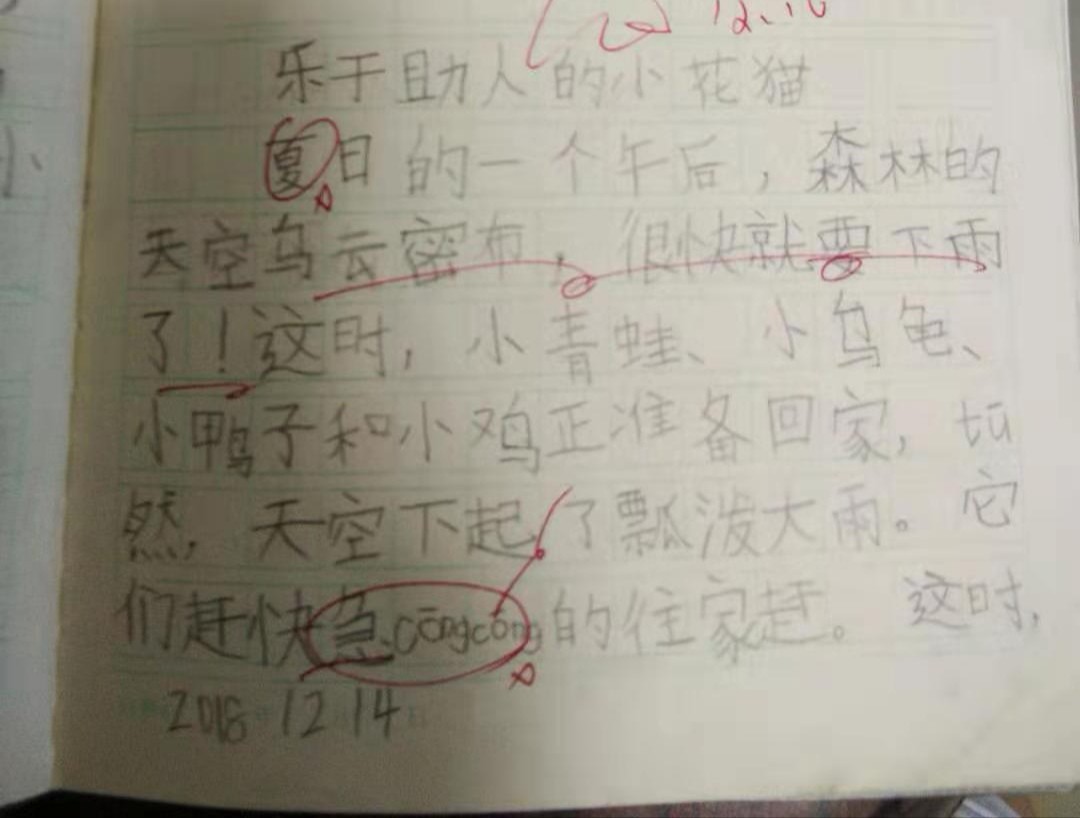 12.16
乐于助人的小花猫
夏日的一个午后，森林的
天空乌云密布，很快就要下雨
了！这时，小青蛙、小乌龟、
小鸭子和小鸡正准备回家，tū
然，天空下起了瓢泼大雨。它
们赶快急cōngcōng的往家赶。这时，
2018 12 14